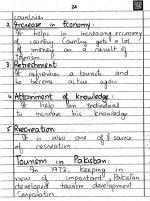 24
countries.
2. Increase in Economy:
It helps in increasing economy
of country. Country gets a lot
of money as a result of
Tourism.
3. Refreshment:
It refreshes a tourist and
he become active again
4. Attainment of knowledge:
It help an individual
to increase his knowledge
5. Recreation
It is also one of source
of recreation
Tourism in Pakistan:
In 1972, keeping in
view of important, Pakistan
developed tourism development
Corporation